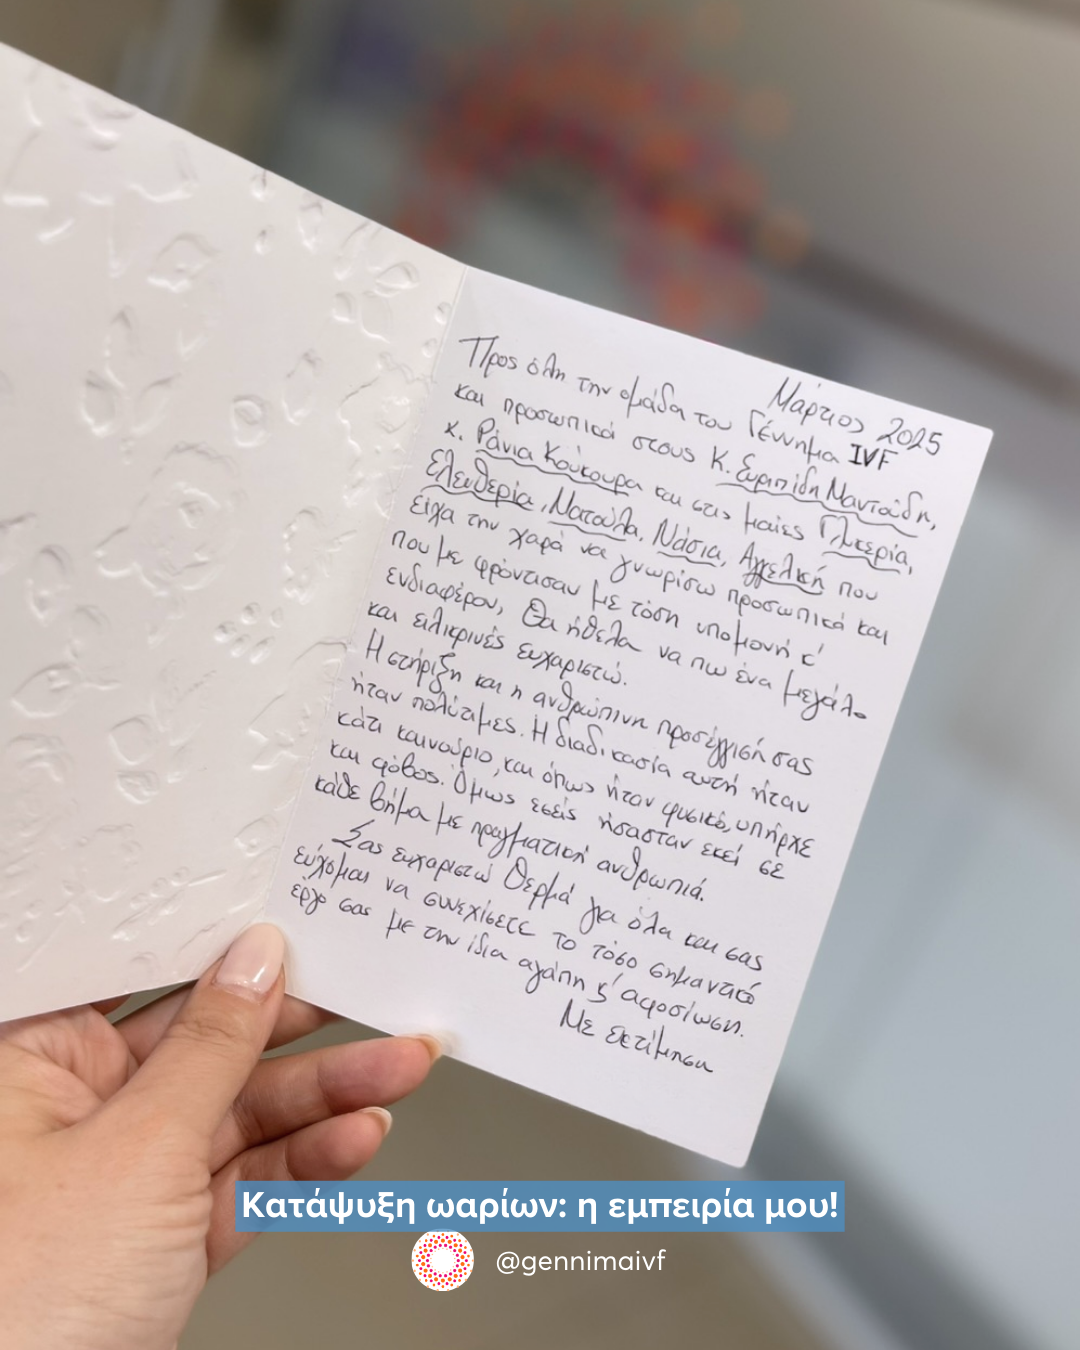 Μάρτιος 2025
Προς όλη την ομάδα του Γέννημα IVF
και προσωπικά στους κ. Ευριπίδη Μαντούδη,
κ. Ράνια Κούκουρα και στις μαίες Γλυκερία,
Ελευθερία, Ματούλα, Νάσια, Αγγελική που
είχα την χαρά να γνωρίσω προσωπικά και
που με φρόντισαν με τόση υπομονή κ'
ενδιαφέρον, θα ήθελα να πω ένα μεγάλο
και ειλικρινές ευχαριστώ.
Η στήριξη και η ανθρώπινη προσέγγισή σας
ήταν πολύτιμες. Η διαδικασία αυτή ήταν
κάτι καινούριο, και όπως ήταν φυσικό, υπήρχε
και φόβος. Όμως εσείς ήσασταν εκεί σε
κάθε βήμα με πραγματική ανθρωπιά.
Σας ευχαριστώ θερμά για όλα και σας
εύχομαι να συνεχίσετε το τόσο σημαντικό
έργο σας με την ίδια αγάπη κ' αφοσίωση.
Με εκτίμηση
Κατάψυξη ωαρίων: η εμπειρία μου!
@gennimaivf